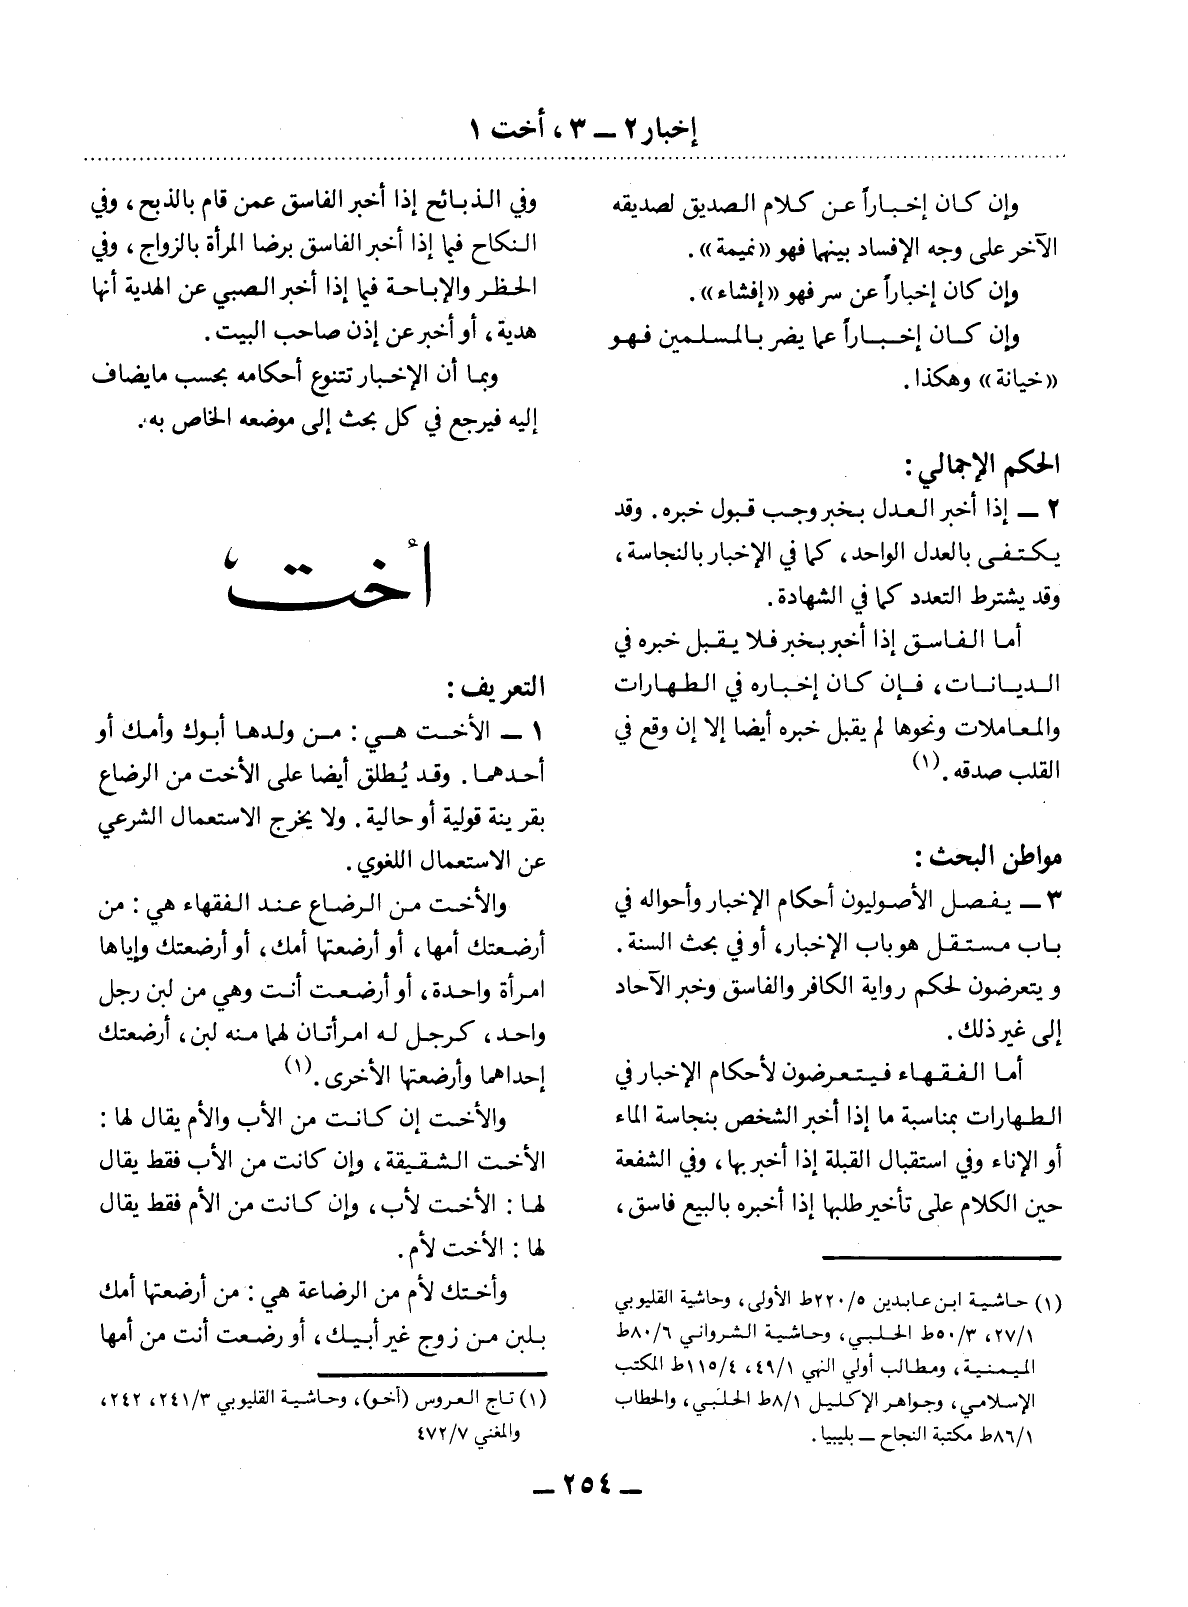 إخبار ٢ ــ ٣، أخت ١
وإن كان إخباراً عن كلام الصديق لصديقه
الآخر على وجه الإفساد بينهما فهو «نميمة».
وإن كان إخباراً عن سر فهو «إفشاء».
وإن كان إخباراً عما يضر بالمسلمين فهو
«خيانة» وهكذا.
الحكم الإجمالي:
٢ ــ إذا أخبر العدل بخبر وجب قبول خبره. وقد
يكتفى بالعدل الواحد، كما في الإخبار بالنجاسة،
وقد يشترط التعدد كما في الشهادة.
أما الفاسق إذا أخبر بخبر فلا يقبل خبره في
الديانات، فإن كان إخباره في الطهارات
والمعاملات ونحوها لم يقبل خبره أيضا إلا إن وقع في
القلب صدقه. (١)
مواطن البحث:
٣ ــ يفصل الأصوليون أحكام الإخبار وأحواله في
باب مستقل هو باب الإخبار، أو في بحث السنة.
ويتعرضون لحكم رواية الكافر والفاسق وخبر الآحاد
إلى غير ذلك.
أما الفقهاء فيتعرضون لأحكام الإخبار في
الطهارات بمناسبة ما إذا أخبر الشخص بنجاسة الماء
أو الإناء وفي استقبال القبلة إذا أخبر بها، وفي الشفعة
حين الكلام على تأخير طلبها إذا أخبره بالبيع فاسق،
(١) حاشية ابن عابدين ٥/ ٢٢٠ط الأولى، وحاشية القليوبي
١/ ٢٧، ٣/ ٥٠ط الحلبي، وحاشية الشرواني ٦/ ٨٠ط
الميمنية، ومطالب أولي النهى ١/ ٤٩، ٤/ ١١٥ط المكتب
الإسلامي، وجواهر الإكليل ١/ ٨ط الحلبي، والحطاب
١/ ٨٦ط مكتبة النجاح ــ بليبيا.
وفي الذبائح إذا أخبر الفاسق عمن قام بالذبح، وفي
النكاح فيما إذا أخبر الفاسق برضا المرأة بالزواج، وفي
الحظر والإباحة فيما إذا أخبر الصبي عن الهدية أنها
هدية، أو أخبر عن إذن صاحب البيت.
وبما أن الإخبار تتنوع أحكامه بحسب مايضاف
إليه فيرجع في كل بحث إلى موضعه الخاص به.
أخت
التعريف:
١ ــ الأخت هي: من ولدها أبوك وأمك أو
أحدهما. وقد يُطلق أيضا على الأخت من الرضاع
بقرينة قولية أو حالية. ولا يخرج الاستعمال الشرعي
عن الاستعمال اللغوي.
والأخت من الرضاع عند الفقهاء هي: من
أرضعتك أمها، أو أرضعتها أمك، أو أرضعتك وإياها
امرأة واحدة، أو أرضعت أنت وهي من لبن رجل
واحد، كرجل له امرأتان لهما منه لبن، أرضعتك
إحداهما وأرضعتها الأخرى. (١)
والأخت إن كانت من الأب والأم يقال لها:
الأخت الشقيقة، وإن كانت من الأب فقط يقال
لها: الأخت لأب، وإن كانت من الأم فقط يقال
لها: الأخت لأم.
وأختك لأم من الرضاعة هي: من أرضعتها أمك
بلبن من زوج غير أبيك، أو رضعت أنت من أمها
(١) تاج العروس (أخو)، وحاشية القليوبي ٣/ ٢٤١، ٢٤٢،
والمغني ٧/ ٤٧٢
ــ ٢٥٤ ــ